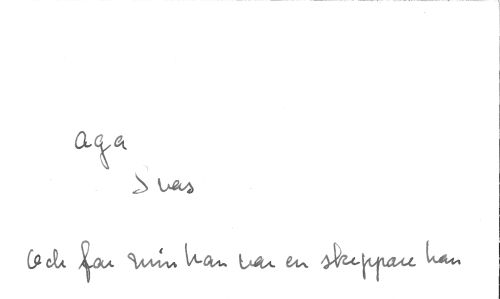 aga
Svas
Och far min han var en skeppare han